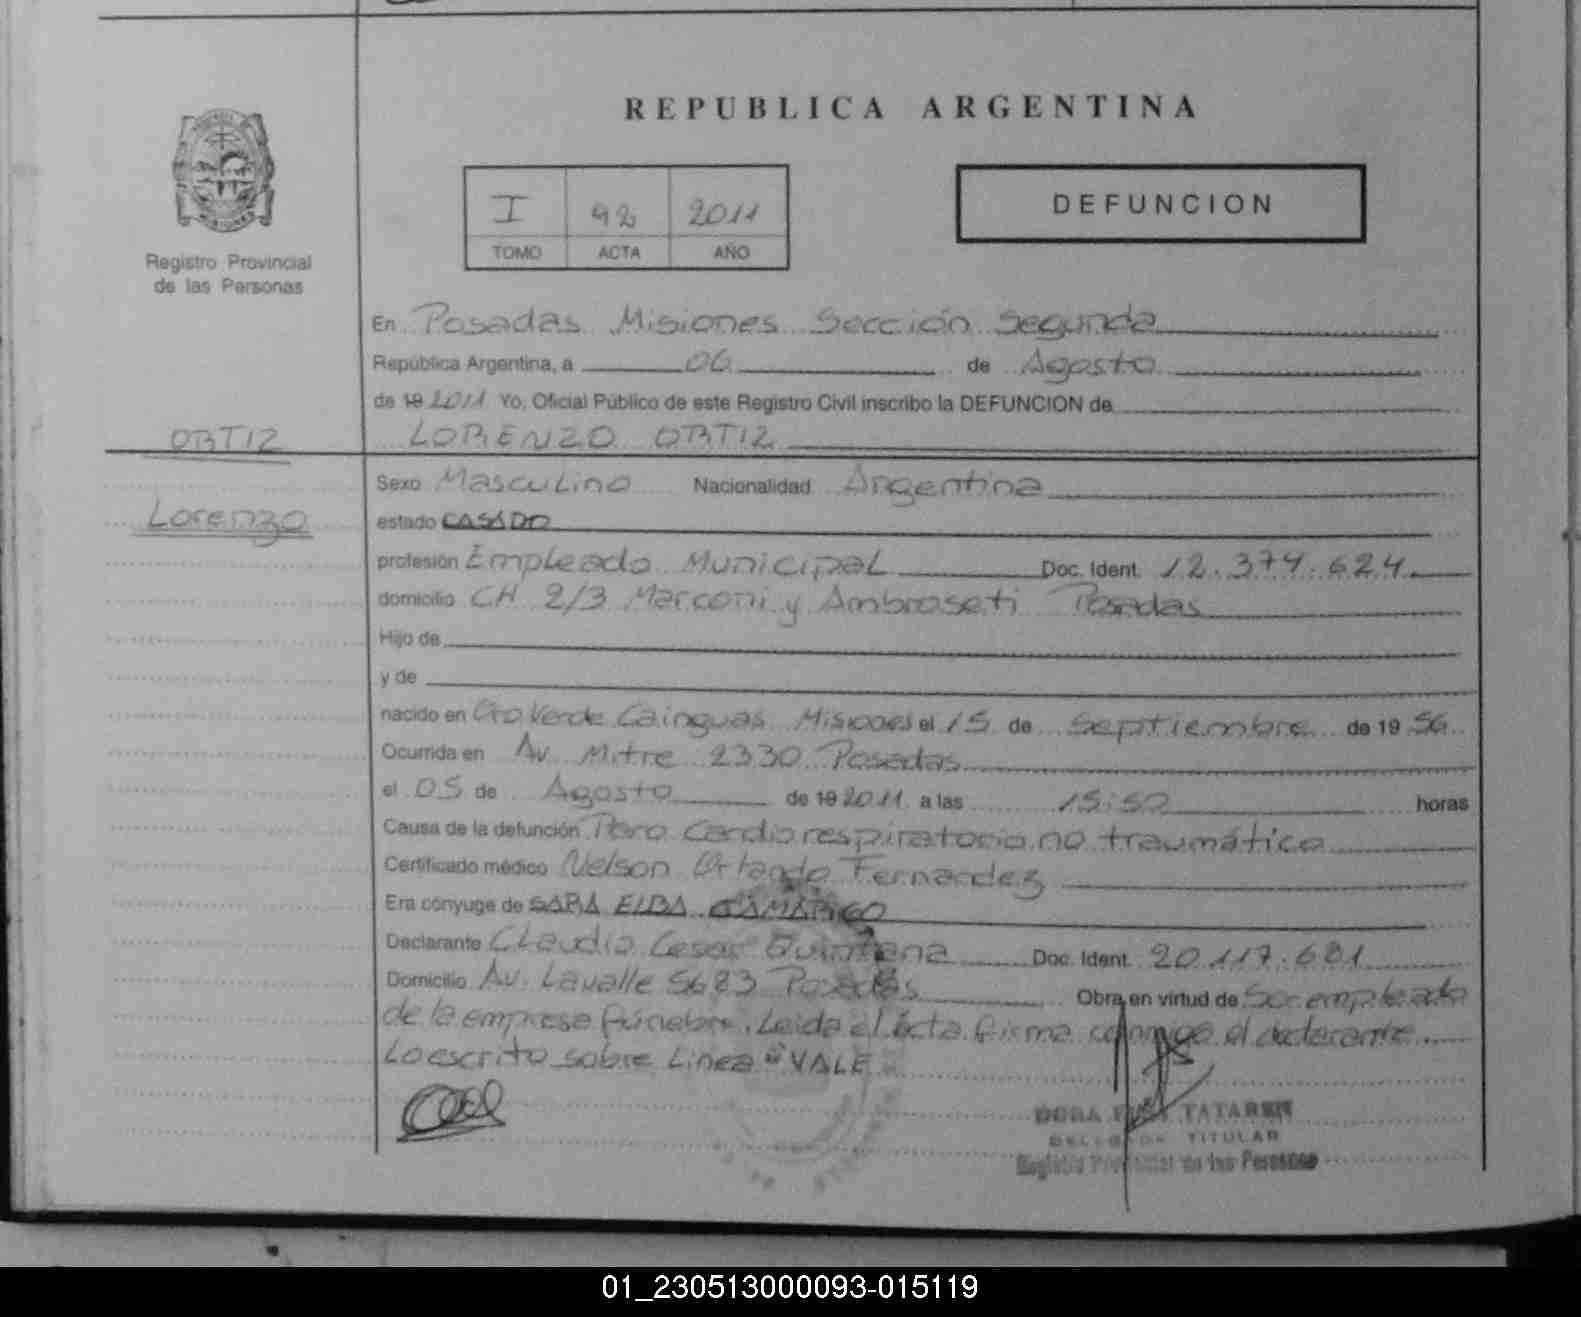 REPUBLICA ARGENTINA
I 92 2011
TOMO ACTA AÑO
DEFUNCION
Registro Provincial
de las Personas
En Posadas Misiones Sección Segunda
República Argentina, a 06 de Agosto
de 19 2011 Yo, Oficial Público de este Registro Civil inscribo la DEFUNCION de
ORTIZ
LORENZO ORTIZ
Sexo Masculino Nacionalidad Argentina
Lorenzo
estado CASADO
profesión Empleado Municipal Doc. Ident. 12.374.624
domicilio CH 2/3 Marconi y Ambroseti Posadas
Hijo de
y de
nacido en Cto Verde Cainguas Misiones el 15 de Septiembre de 19 56
Ocurrida en Av. Mitre 2330 Posadas
el 05 de Agosto de 19 2011 a las 15:50 horas
Causa de la defunción Paro Cardiorespiratorio no traumático
Certificado médico Nelson Orlando Fernandez
Era cónyuge de SARA ELBA
Declarante Claudio Cesar Quintana Doc. Ident. 20.117.681
Domicilio Av. Lavalle 5683 Posadas Obra en virtud de Ser empleado
de la empresa fúnebre. Leída el acta firma conmigo el declarante
Lo escrito sobre Linea "VALE
TATAREN
TITULAR
Registro Provincial de las Personas
01_230513000093-015119